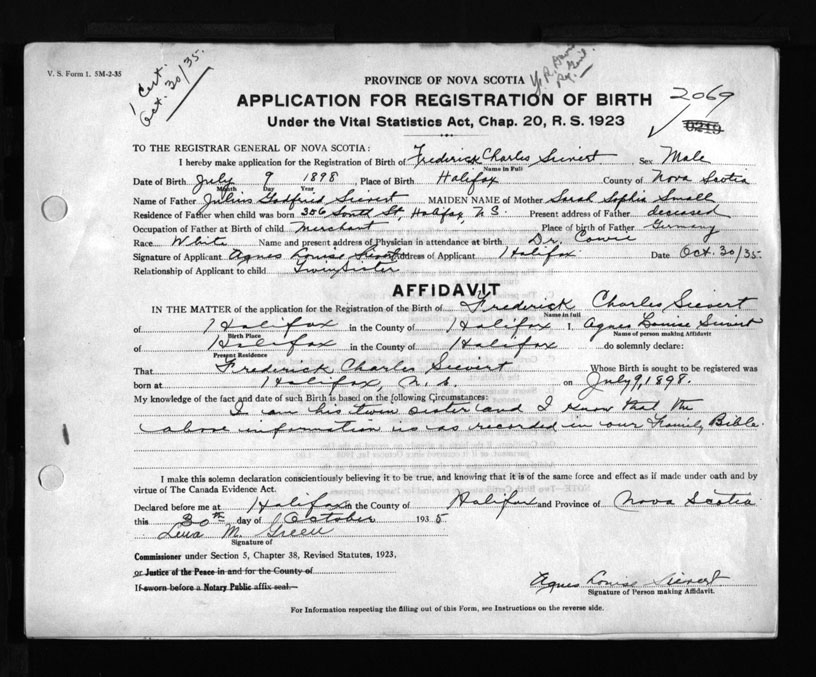 V. S. Form 1. 5M-2-35
1 Cert.
Oct. 30/35.
PROVINCE OF NOVA SCOTIA
APPLICATION FOR REGISTRATION OF BIRTH
2069
Under the Vital Statistics Act, Chap. 20, R. S. 1923
0210
TO THE REGISTRAR GENERAL OF NOVA SCOTIA:
I hereby make application for the Registration of Birth of Frederick Charles Sievert, Sex Male
Name in Full
Date of Birth July 9 1898, Place of Birth Halifax County of Nova Scotia
Month Day Year
Name of Father Julius Godfried Sievert MAIDEN NAME of Mother Sarah Sophia Small
Residence of Father when child was born 306 South St, Halifax N S. Present address of Father deceased
Occupation of Father at Birth of child merchant Place of birth of Father Germany
Race White Name and present address of Physician in attendance at birth Dr. Cowie
Signature of Applicant Agnes Louise Sievert Address of Applicant Halifax Date Oct. 30/35.
Relationship of Applicant to child Twin Sister
AFFIDAVIT
IN THE MATTER of the application for the Registration of the Birth of Frederick Charles Sievert
Name in full
of Halifax in the County of Halifax I, Agnes Louise Sievert
Birth Place Name of person making Affidavit
of Halifax in the County of Halifax do solemnly declare:
Present Residence
That Frederick Charles Sievert Whose Birth is sought to be registered was
born at Halifax, N. S. on July 9, 1898.
My knowledge of the fact and date of such Birth is based on the following Circumstances:
I am his twin sister and I know that the
above information is as recorded in our Family Bible.
I make this solemn declaration conscientiously believing it to be true, and knowing that it is of the same force and effect as if made under oath and by
virtue of The Canada Evidence Act.
Declared before me at Halifax in the County of Halifax and Province of Nova Scotia
this 30th day of October 1935
Lena M. Green
Signature of
Commissioner under Section 5, Chapter 38, Revised Statutes, 1923,
or Justice of the Peace in and for the County of
If sworn before a Notary Public affix seal.
Agnes Louise Sievert
Signature of Person making Affidavit.
For Information respecting the filling out of this Form, see Instructions on the reverse side.